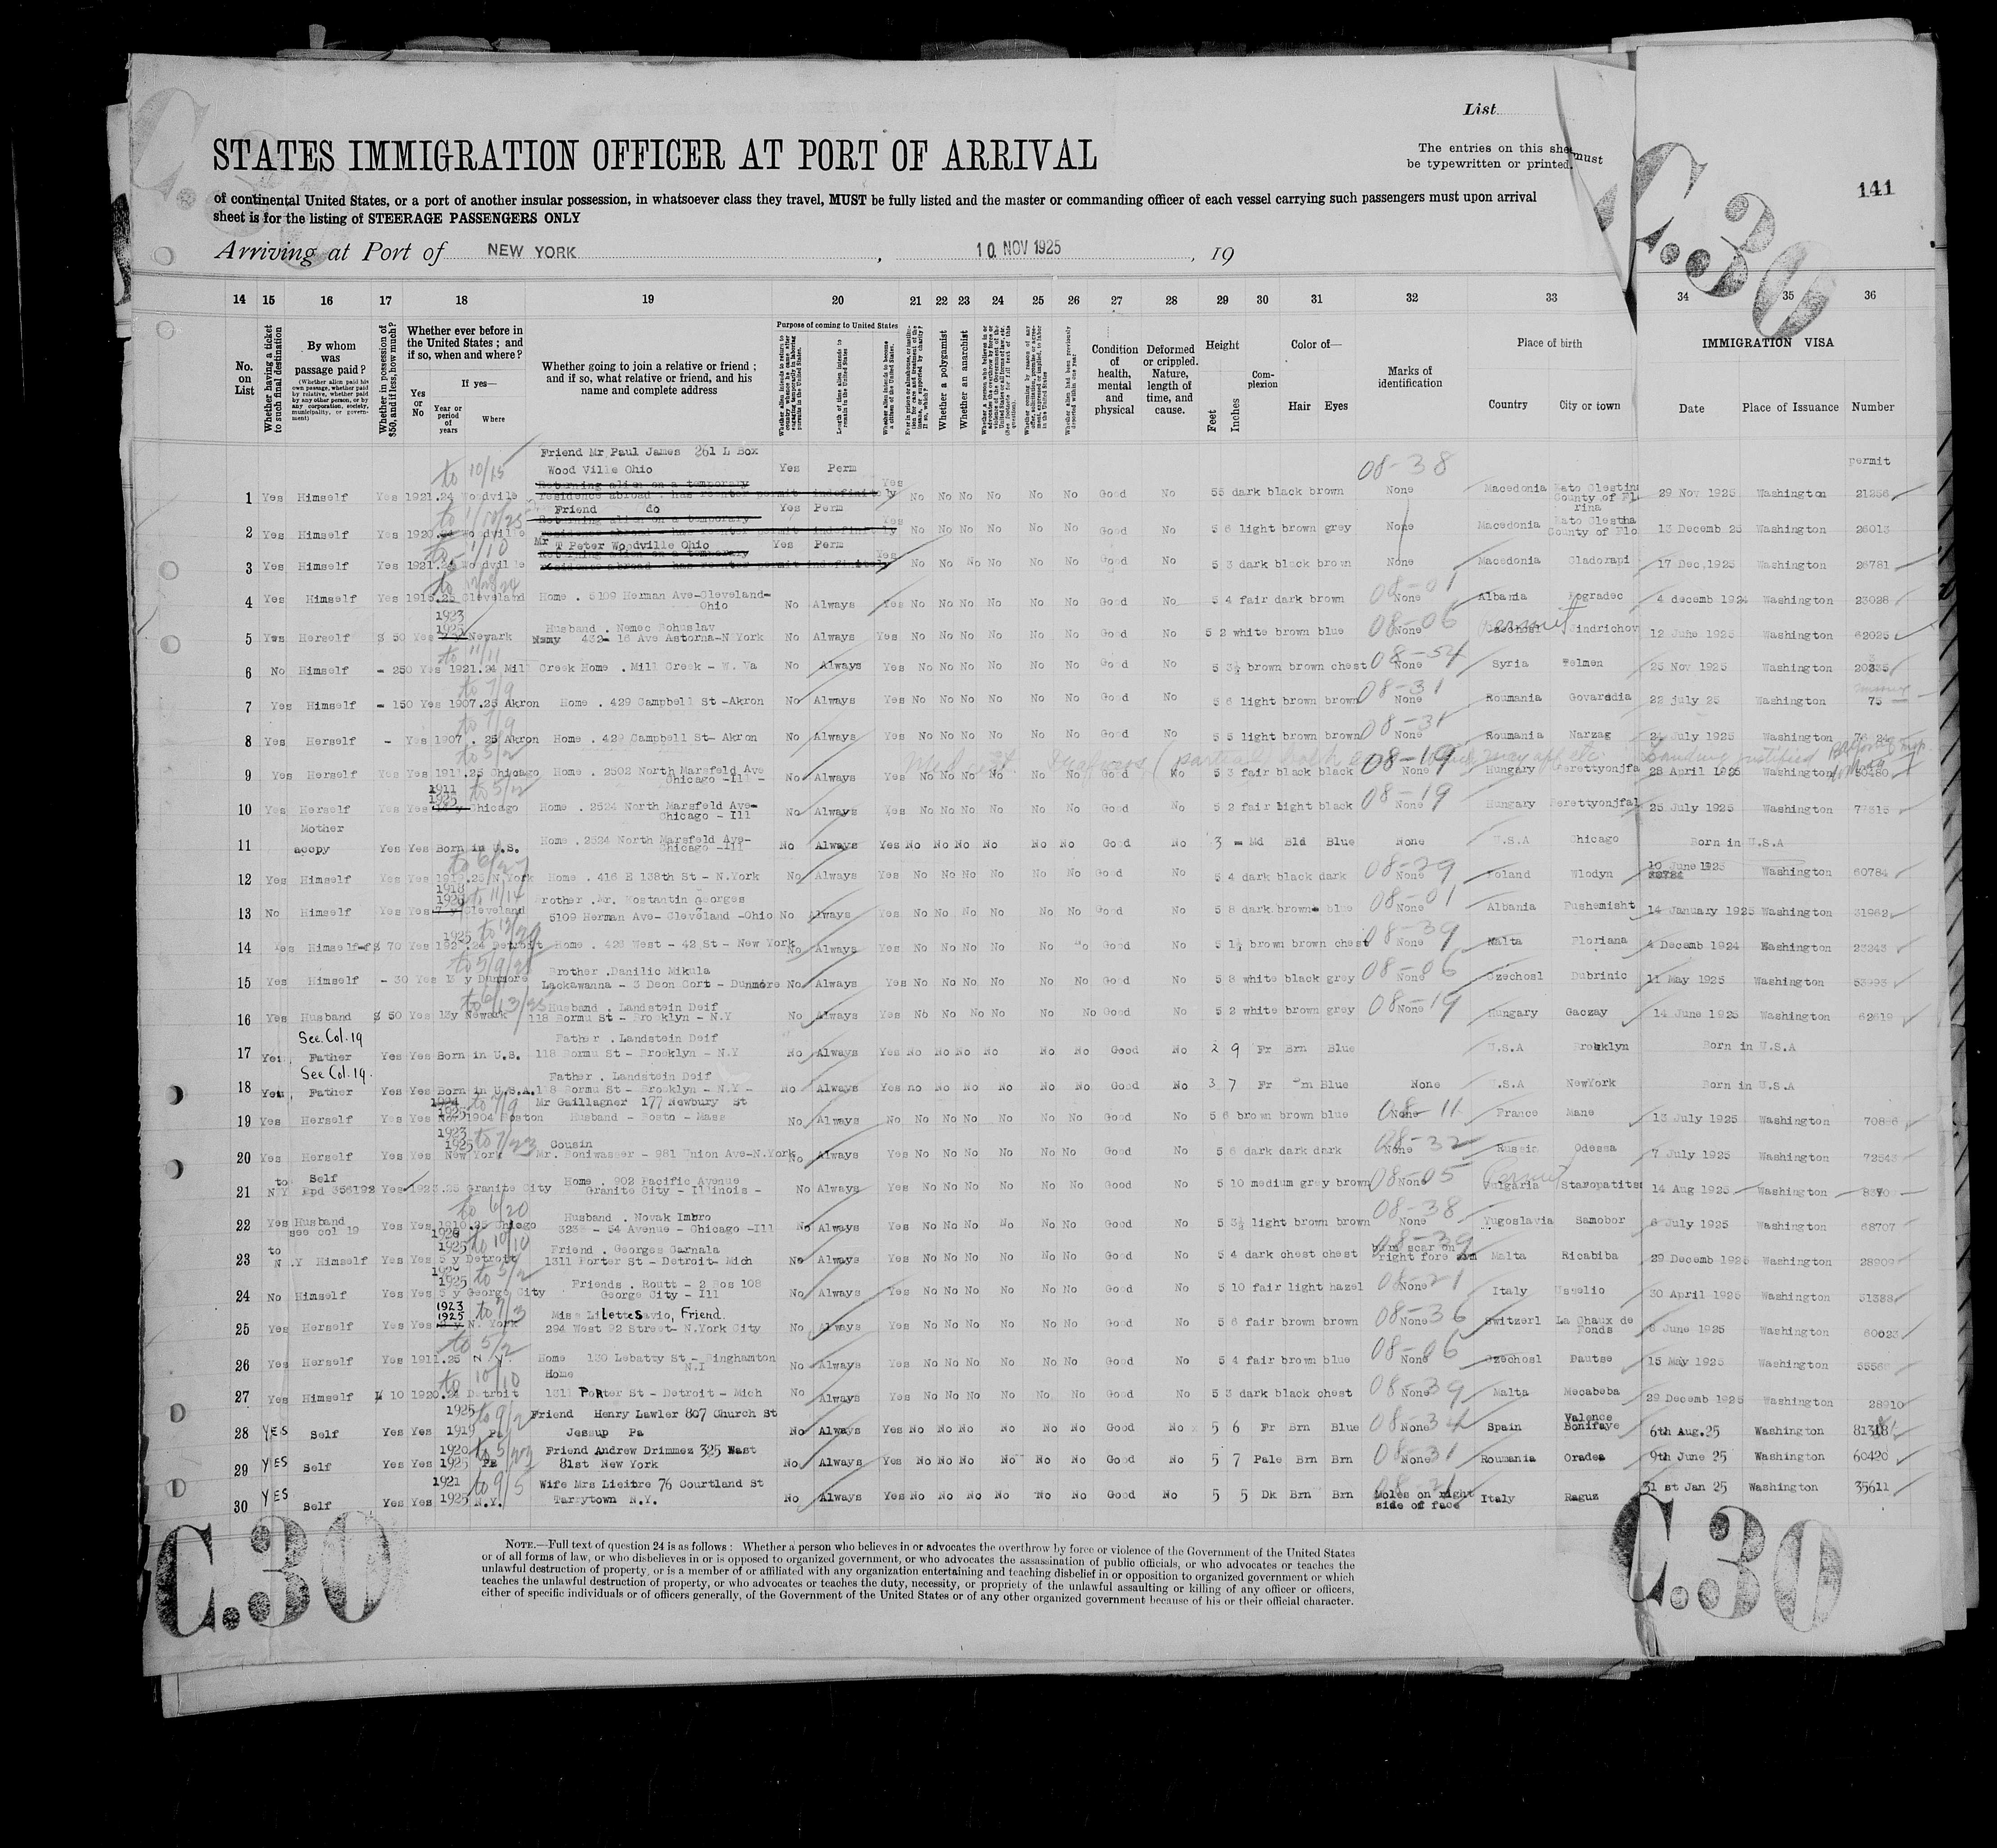 List
STATES IMMIGRATION OFFICER AT PORT OF ARRIVAL
The entries on this sheet must
be typewritten or printed.
141
of continental United States, or a port of another insular possession, in whatsoever class they travel, MUST be fully listed and the master or commanding officer of each vessel carrying such passengers must upon arrival
sheet is for the listing of STEERAGE PASSENGERS ONLY
Arriving at Port of NEW YORK, 10 NOV 1925, 19
14 15 16 17 18 19 20 21 22 23 24 25 26 27 28 29 30 31 32 33 34 35 36
No. on List
Whether having a ticket to such final destination
By whom was passage paid?
(Whether alien paid his own passage, whether paid by relative, whether paid by any other person, or by any corporation, society, municipality, or government)
Whether in possession of $50, and if less, how much?
Whether ever before in the United States; and if so, when and where?
Yes or No
If yes—
Year or period of years
Where
Whether going to join a relative or friend; and if so, what relative or friend, and his name and complete address
Purpose of coming to United States
Length of time alien intends to remain in the United States
Whether a polygamist
Whether an anarchist
Condition of health, mental and physical
Deformed or crippled. Nature, length of time, and cause.
Height
Feet
Inches
Complexion
Color of—
Hair Eyes
Marks of identification
Place of birth
Country
City or town
IMMIGRATION VISA
Date
Place of Issuance
Number
permit
Friend Mr Paul James 261 L Box
to 10/15 Wood Ville Ohio Yes Perm 08-38
Returning alien on a temporary Yes
1 Yes Himself Yes 1921.24 Woodvile residence abroad . has reenter permit indefinitely No No No No No No Good 55 dark black brown None Macedonia 29 Nov 1925 Washington 21256
County of Fl
rina
Friend do Yes Perm
Returning alien on a temporary Yes
2 Yes Himself Yes 1920 Woodville residence abroad has reenter permit indefinitly No No No No No No Good No 5 6 light brown grey None Macedonia County of Flo 13 Decemb 25 Washington 26013
Mr T Peter Woodville Ohio Yes Perm
Returning alien on a temporary Yes
3 Yes Himself Yes 1921 Woodville residence abroad has reenter permit indefinitely No No No No No No Good No 5 3 dark black brown None Macedonia Cladorapi 17 Dec,1925 Washington 26781
4 Yes Himself Yes 1915.25 Cleveland Home . 5109 Herman Ave-Cleveland- Ohio No Always Yes No No No No No No Good No 5 4 fair dark brown 08-01 None Albania Pogradec 4 decemb 1924 Washington 23028
1923
1925
5 Yes Herself $ 50 Yes Newark Husband . Nemec Bohuslav
432- 16 Ave Astorna-N York No Always Yes No No No No No No Good No 5 2 white brown blue 08-06 None Czechosl Jindrichov 12 June 1925 Washington 62025
to 11/11
6 No Himself - 250 Yes 1921.24 Mill Creek Home . Mill Creek - W. Va No Always Yes No No No No No No Good No 5 3½ brown brown chest 08-54 None Syria Felmen 25 Nov 1925 Washington
to 7/9
7 Yes Himself - 150 Yes 1907.25 Akron Home . 429 Campbell St -Akron No Always Yes No No No No No No Good No 5 6 light brown brown 08-31 None Roumania Govarsdia 22 july 25 Washington 75
to 7/9
8 Yes Herself - Yes 1907 . 25 Akron Home . 429 Campbell St- Akron No Always Yes No No No No No No Good No 5 5 light brown brown 08-31 None Roumania Narzag 24 July 1925 Washington
to 5/2
9 Yes Herself Yes Yes 1911.25 Chicago Home . 2502 North Marsfeld Ave
Chicago -Ill - No Always Yes No No No No No No Good No 5 3 fair black black 08-19 None Hungary Perettyonjfa 28 April 1925 Washington 50480
Landing justified
1911
1925 to 5/2
10 Yes Herself Yes Yes Chicago Home . 2524 North Marsfeld Ave-
Chicago - Ill No Always Yes No No No No No No Good No 5 2 fair light black 08-19 None Hungary Perettyonjfal 25 July 1925 Washington 77315
Mother
11 accpy Yes Yes Born in U.S. Home . 2524 North Marsfeld Ave-
Chicago -Ill No Always Yes No No No No No No Good No 3 - Md Bld Blue None U.S.A Chicago Born in U.S.A
12 Yes Himself Yes Yes 1912.25 N.York Home . 416 E 138th St - N.York No Always Yes No No No No No No Good No 5 4 dark black dark 08-29 None Poland Wlodyn 10 June 1925 Washington 60784
1918
to 11/14
13 No Himself Yes Yes Cleveland Brother .Mr. Kostantin Georges
5109 Herman Ave- Cleveland -Ohio No Always Yes No No No No No No Good No 5 8 dark brown blue 08-01 None Albania Pushemisht 14 January 1925 Washington 31962
1925
14 Yes Himself $ 70 Yes Detroit Home . 426 West - 42 St - New York No Always Yes No No No No No No Good No 5 1½ brown brown chest 08-39 None Malta Floriana 4 Decemb 1924 Washington 23243
15 Yes Himself - 30 Yes 13 y Dunmore Brother .Danilic Mikula
Lackawanna - 3 Deon Cort - Dunmore No Always Yes No No No No No No Good No 5 8 white black grey 08-06 None Czechosl Dubrinic 11 May 1925 Washington 53993
16 Yes Husband $ 50 Yes 13y Newark Husband . Landstein Deif
118 Bormu St - Brooklyn - N.Y No Always Yes No No No No No No Good No 5 2 white brown grey 08-19 None Hungary Gaczay 14 June 1925 Washington 62619
See. Col. 19
17 Yes Father Yes Yes Born in U.S. Father . Landstein Deif
118 Bormu St - Brooklyn - N.Y No Always Yes No No No No No No Good No 2 9 Fr Brn Blue U.S.A Brooklyn Born in U.S.A
See Col. 19.
18 Yes Father Yes Yes Born in U.S.A. Father . Landstein Deif
118 Bormu St - Brooklyn - N.Y - No Always Yes no No No No No No Good No 3 7 Fr Brn Blue None U.S.A NewYork Born in U.S.A
1925 to 7/9
19 Yes Herself Yes Yes 1904 Boston Mr Gaillagner 177 Newbury St
Husband - Bosto - Mass No Always No No No No No No No Good No 5 6 brown brown blue 08-11 None France Mane 13 July 1925 Washington 70886
1923
1925 to 7/23
20 Yes Herself Yes Yes New York Cousin
Mr. Boniwasser - 981 Union Ave-N.York No Always Yes No No No No No No Good No 5 6 dark dark dark 08-32 None Russia Odessa 7 July 1925 Washington 72543
to Self
21 N Y Yes 1923.25 Granite City Home . 902 Pacific Avenue
Granite City - Illinois - No Always Yes No No No No No No Good No 5 10 medium grey brown 08-05 None Bulgaria Staropatitsa 14 Aug 1925 Washington
to 6/20
22 Yes Husband
see col 19 Yes Yes 1910.25 Chicago Husband . Novak Imbro
3233 - 54 Avenue - Chicago -Ill No Always Yes No No No No No No Good No 5 3½ light brown brown 08-38 None Yugoslavia Samobor 6 July 1925 Washington 68707
1920
1925 to 10/10
23 to N.Y Himself Yes Yes 5 y Detroit Friend . Georges Carnala
1311 Porter St - Detroit- Mich No Always Yes No No No No No No Good No 5 4 dark chest chest 08-39 burn scar on
right fore arm Malta Ricabiba 29 Decemb 1925 Washington 28909
1925 to 5/2
24 No Himself Yes Yes 5 y George City Friends . Routt - 2 Bos 108
George City - Ill No Always Yes No No No No No No Good No 5 10 fair light hazel 08-21 None Italy Usvelio 30 April 1925 Washington 51388
1923
1925 to 7/3
25 Yes Herself Yes Yes N. York Miss Lilette Savio, Friend.
294 West 92 Street- N.York City No Always Yes No No No No No No Good No 5 6 fair brown brown 08-36 None Switzerl La Chaux de
Fonds 6 June 1925 Washington 60023
to 5/2
26 Yes Herself Yes 1911.25 N Y. Home 130 Lebatty St - Binghamton
N.I No Always Yes No No No No No No Good No 5 4 fair brown blue 08-06 None Czechosl Dautse 15 May 1925 Washington
to 10/10
27 Yes Himself $ 10 1920.24 Detroit Home
1311 Porter St - Detroit - Mich No Always Yes No No No No No No Good No 5 3 dark black chest 08-39 None Malta Mecabeba 29 Decemb 1925 Washington 28910
1925 to 9/2
28 YES Self Yes Yes 1919 Pa Friend Henry Lawler 807 Church St
Jessup Pa No Always Yes No No No No No No Good No 5 6 Fr Brn Blue 08-34 None Spain Valence
Bonifaye 6th Aug.25 Washington
1920
29 YES Self Yes Yes 1925 Pa Friend Andrew Drimmez 325 East
81st New York No Always Yes No No No No No No Good No 5 7 Pale Brn Brn 08-31 None Roumania Oradea 9th June 25 Washington 60420
1921 to 9/5
30 YES Self Yes Yes 1925 N.Y. Wife Mrs Lieitre 76 Courtland St
Tarrytown N.Y. No Always Yes No No No No No No Good No 5 5 Dk Brn Brn 08-21 Moles on right
side of face Italy Raguz 31 st Jan 25 Washington 35611
C.30
C.30
C.30
NOTE.—Full text of question 24 is as follows: Whether a person who believes in or advocates the overthrow by force or violence of the Government of the United States
or of all forms of law, or who disbelieves in or is opposed to organized government, or who advocates the assassination of public officials, or who advocates or teaches the
unlawful destruction of property, or is a member of or affiliated with any organization entertaining and teaching disbelief in or opposition to organized government or which
teaches the unlawful destruction of property, or who advocates or teaches the duty, necessity, or propriety of the unlawful assaulting or killing of any officer or officers,
either of specific individuals or of officers generally, of the Government of the United States or of any other organized government because of his or their official character.